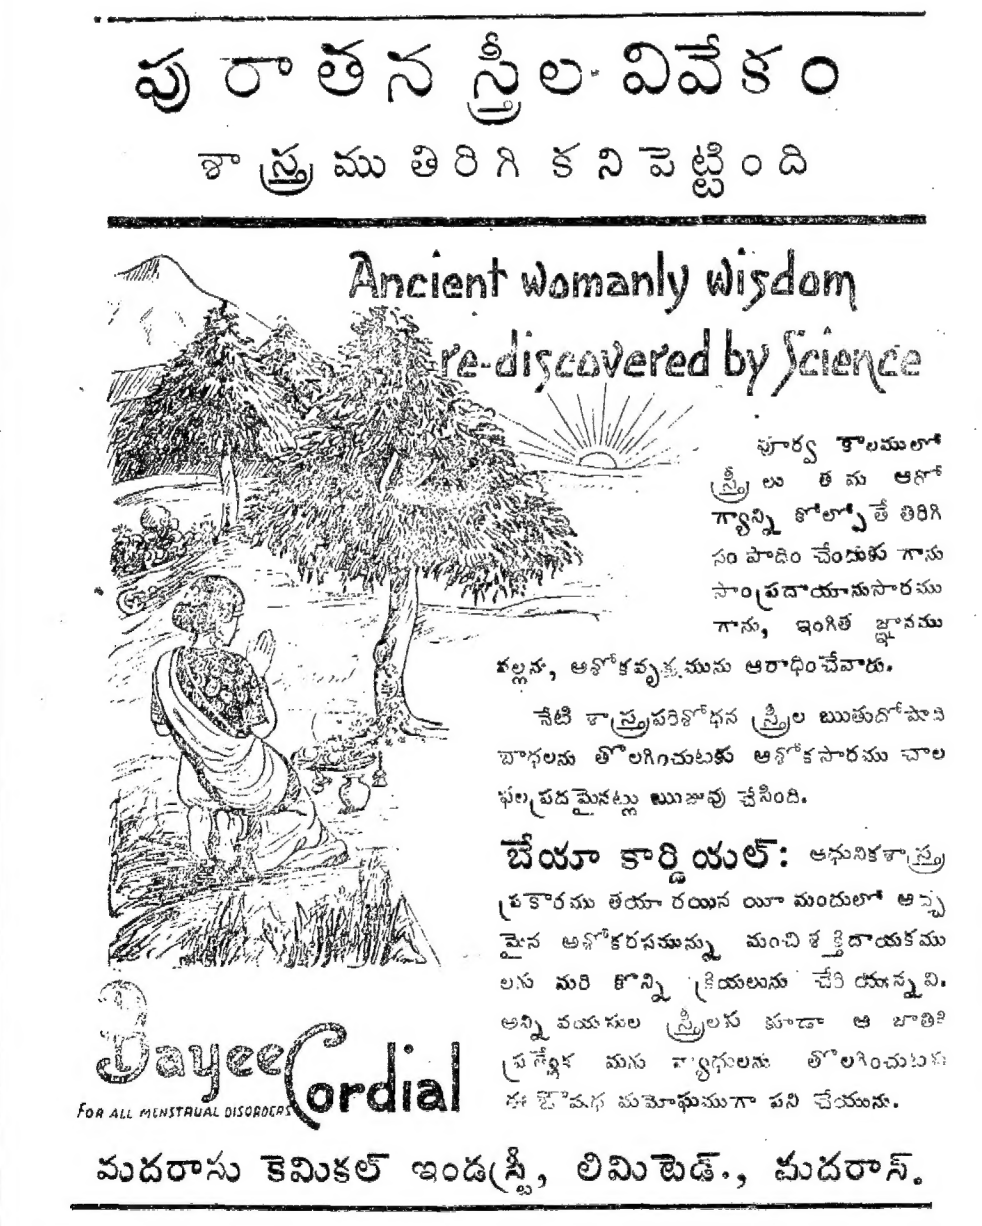 పురాతన స్త్రీల వివేకం
శాస్త్రము తిరిగి కనిపెట్టింది
Ancient womanly wisdom
re-discovered by Science
పూర్వ కాలములో
స్త్రీలు తమ ఆరో
గ్యాన్ని కోల్పోతే తిరిగి
సంపాదించేందుకు గాను
సాంప్రదాయానుసారము
గాను, ఇంగిత జ్ఞానము
వల్లనూ, ఆశోకవృక్షమును ఆరాధించేవారు.
నేటి శాస్త్రపరిశోధన స్త్రీల ఋతుదోషాది
బాధలను తొలగించుటకు ఆశోకసారము చాల
ఫలప్రదమైనట్లు ఋజువు చేసింది.
బేయీ కార్డియల్: ఆధునికశాస్త్ర
ప్రకారము తయారయిన యీ మందులో అచ్చ
మైన అశోకరసమున్ను మంచి శక్తిదాయకము
లగు మరి కొన్ని క్రియలును చేరి యున్నవి.
అన్ని వయసుల స్త్రీలకు కూడా ఆ జాతికి
ప్రత్యేక మగు వ్యాధులను తొలగించుటకు
ఈ ఔషధ మమోఘముగా పని చేయును.
Bayee Cordial
FOR ALL MENSTRUAL DISORDERS
మదరాసు కెమికల్ ఇండస్ట్రీ, లిమిటెడ్., మదరాస్.